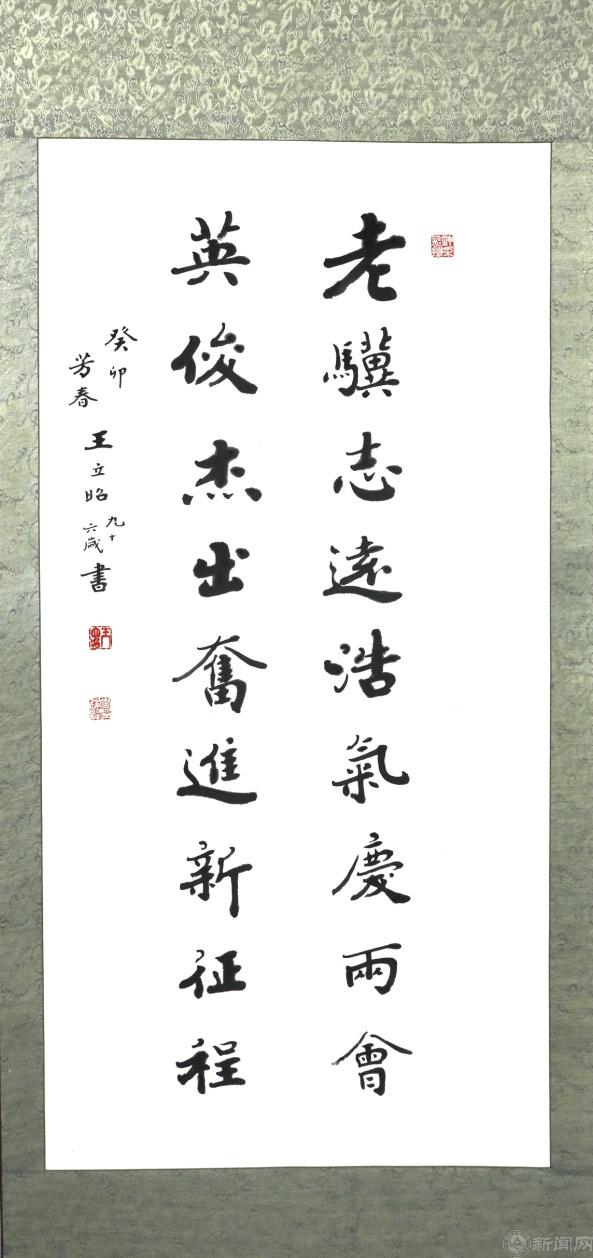 老驥志遠浩氣慶兩會
英俊杰出奮進新征程
癸卯
芳春
王立昭
九十
六歲
書
新闻网